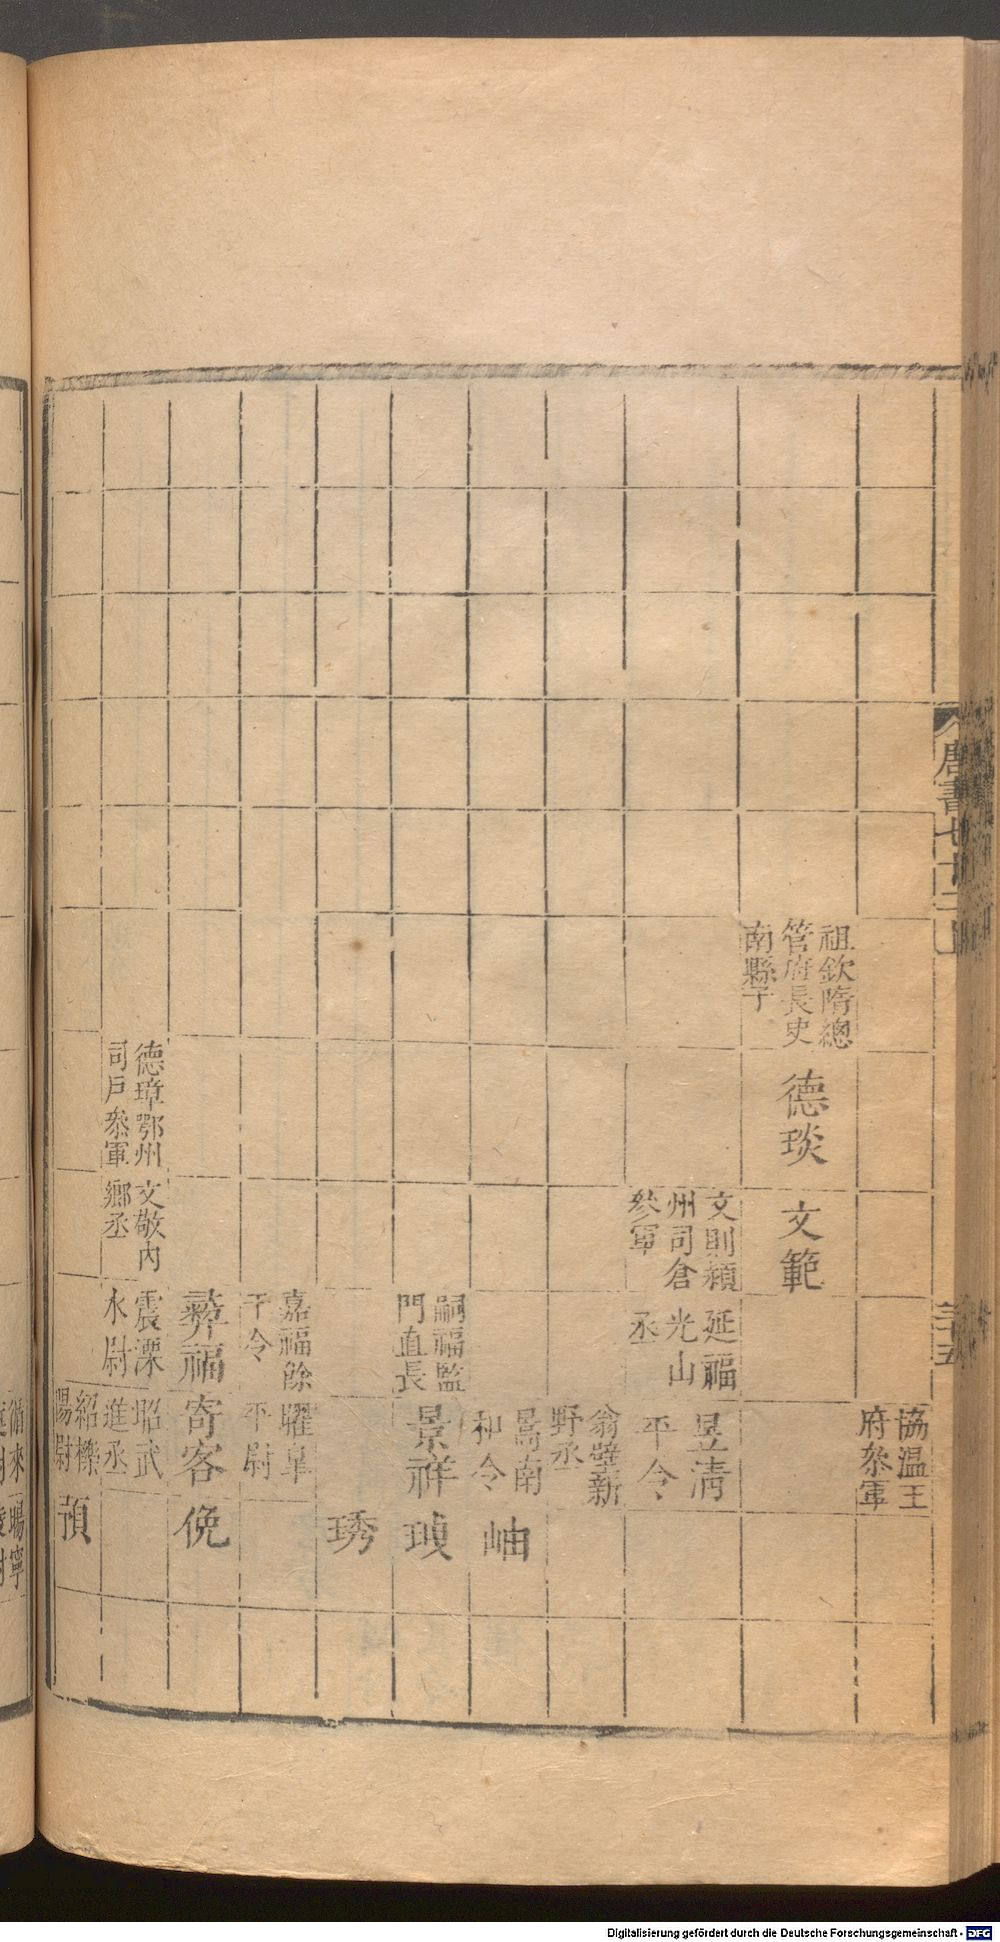 唐書七十二上
三十五
協溫王
府叅軍
祖欽隋總
管府長史
南縣子
德琰
文範
文則潁
州司倉
參軍
延福
光山
丞
昱淸
平令
翁壁新
野丞
暠南
和令
岫
嗣福監
門直長
景祥
瑱
琇
嘉福餘
干令
曜阜
平尉
彛福
寄客
俛
德璋鄂州
司戶叅軍
文敬內
鄉丞
震溧
水尉
昭武
進丞
紹櫟
陽尉
預
脩來
暘寧
Digitalisierung gefördert durch die Deutsche Forschungsgemeinschaft - DFG